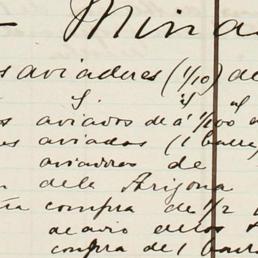 Mina
aviadores (1/10) de
aviados de á 1/100
aviados (1 barra)
aviadores de
de la Arizona
compra de 1/2
de avio de los
compra de 1 barra